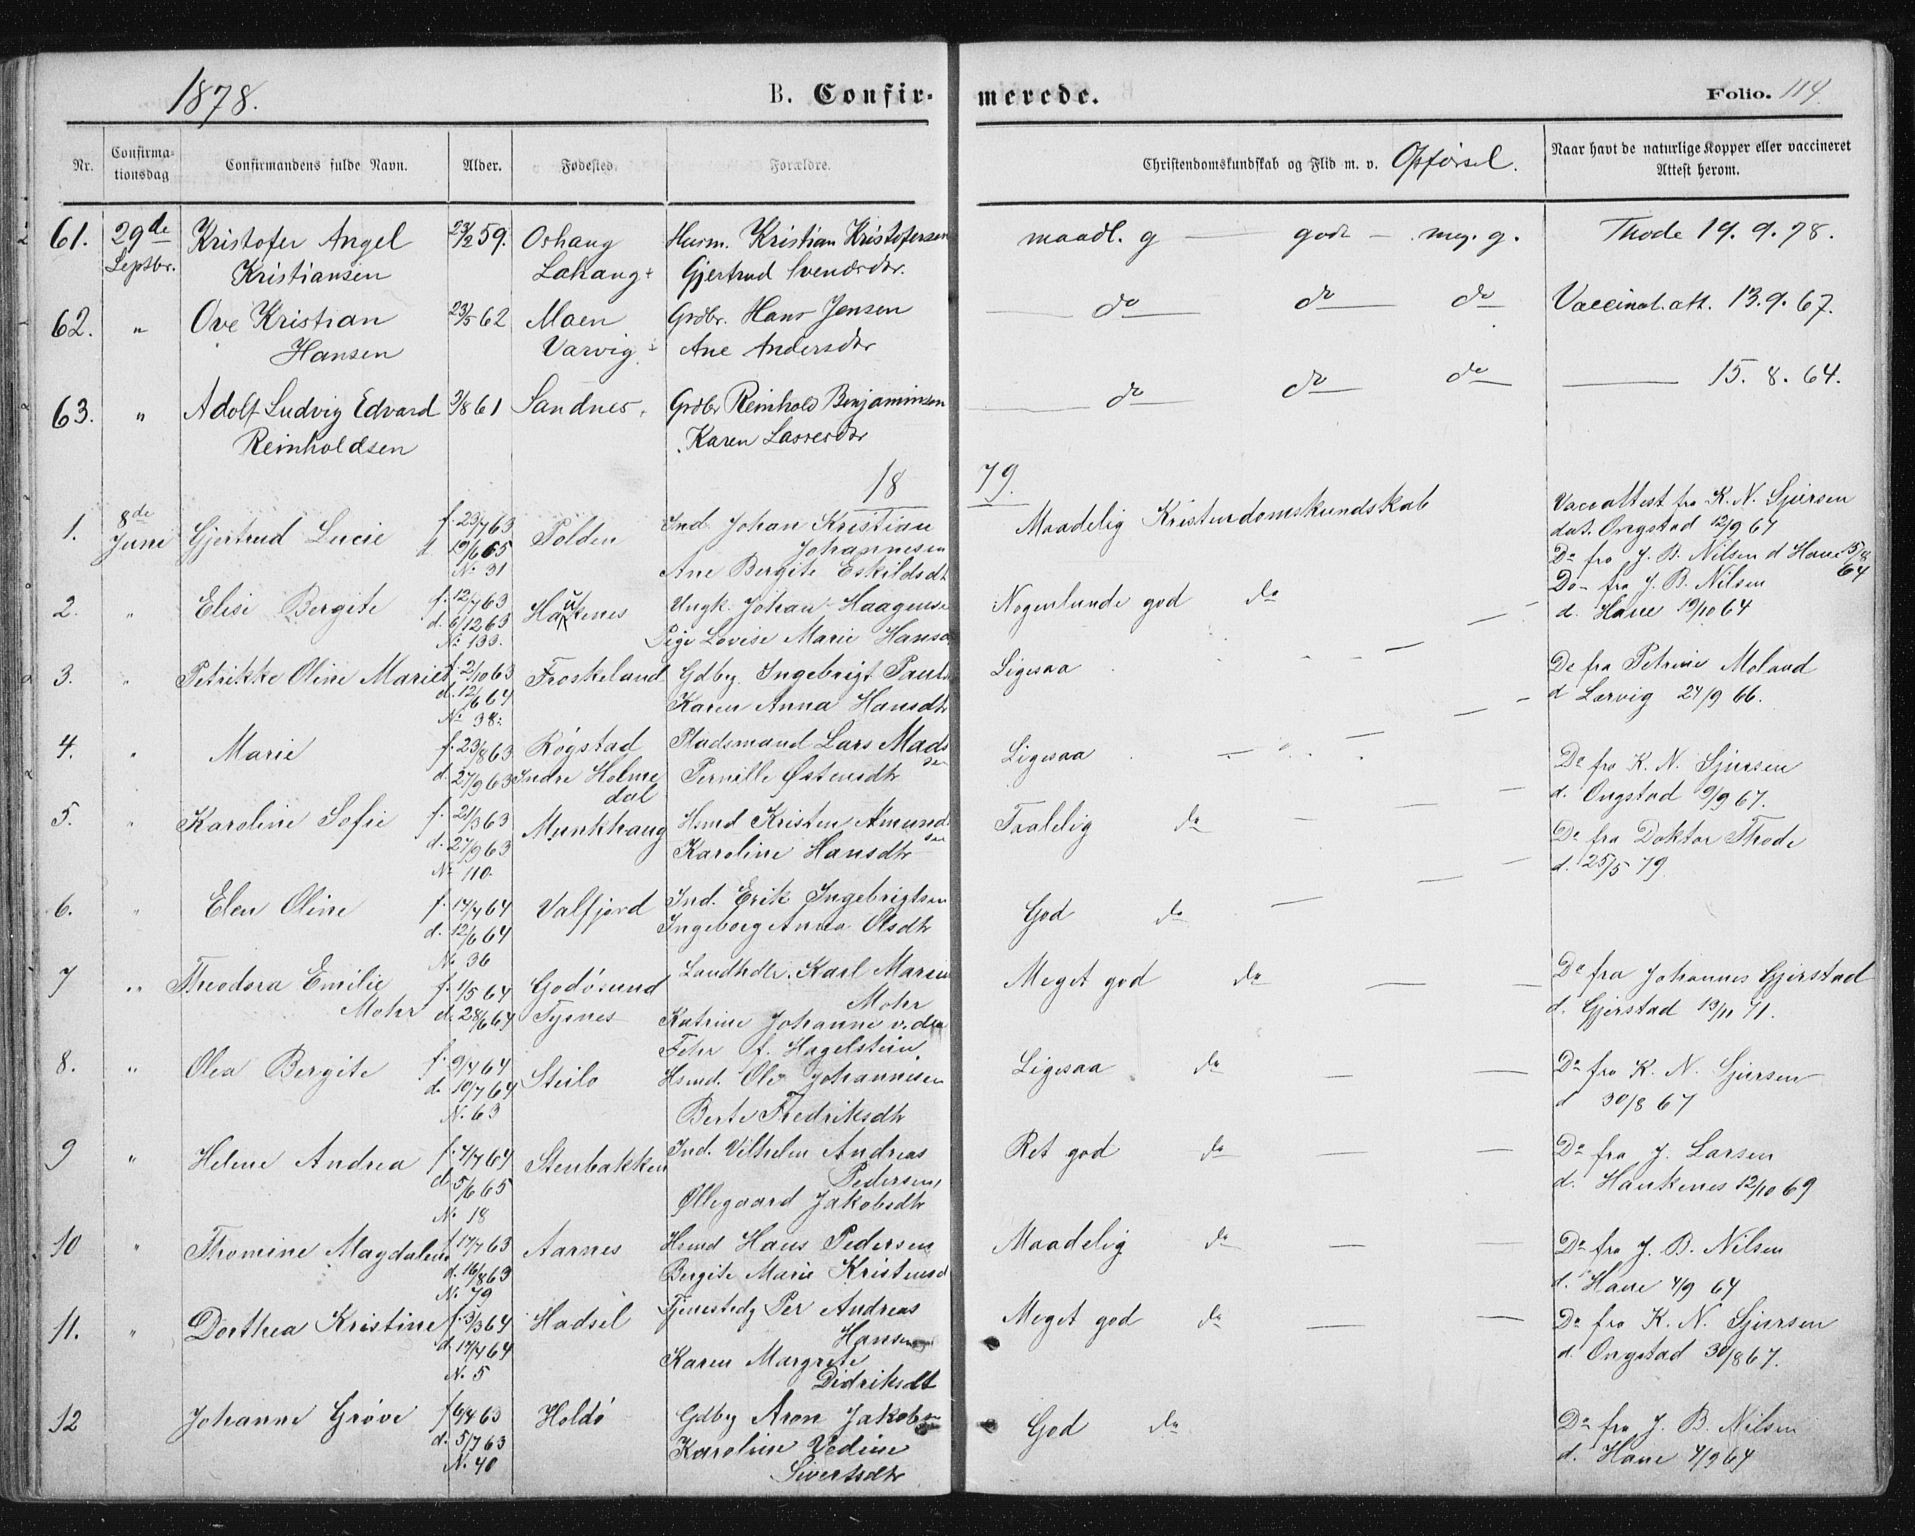 1878.
B. Confir-
merede.
Folio. 114.
Nr.
Confirma-
tionsdag
Confirmandens fulde Navn.
Alder.
Fødested.
Forældre.
Christendomskundskab og Flid m. v. Opførsel.
Naar havt de naturlige Kopper eller vaccineret
Attest herom.
61. 29de Kristofer Angel 23/2 59. Oshaug Husm. Kristian Kristofersen maadl. g — godt — meg. g. Thode 19. 9. 78.
Septbr. Kristiansen Lahaug Gjertrud
62. " Ove Kristian 23/5 62 Moen Grdbr. Hans Jensen do do do Vaccinat. att. 13. 9. 67.
Hansen Varvig Ane Andersdtr
63. " Adolf Ludvig Edvard 2/8 61 Sandnes. Grdbr Reinhold Benjaminsen do do do — 15. 8. 64.
Reinholdsen Karen Lassesdtr
18 79.
1. 8de Gjertrud Lucie f. 23/7 63 Polden Ind. Johan Kristian Maadelig Kristendomskundskab Vaccattest fra K. N. Sjursen
Juni d. 19/6 65 Johannesen dat. Ongstad 12/9 67
No 31 Ane Bergite Eskildsdt Do fra J. B. Nilsen d Hane 15/8 64
2. " Elise Bergite f. 12/7 63 Haukenes Ungk. Johan Haagense Nogenlunde god do — — Do fra J. B. Nilsen
d. 6/12 63 Pige Lovise Marie Hansd d. Hane 19/10 64
No 133.
3. " Petrikke Oline Marie f. 2/10 63 Froskeland Gdby. Ingebrigt Pauls Ligesaa Do fra Petrine Moland
d. 12/6 64 Karen Anna Hansdtr d Lervig 24/9 66.
No 38.
4. " Marie f. 23/8 63 Røgstad Pladsmand Lars Mads Ligesaa Do fra K. N. Sjursen
d. 27/9 63 Indre Holme sen d. Ongstad 9/9 67.
dal Pernille Østensdtr
5. " Karoline Sofie f. 21/3 63 Munkhaug Hsmd Kristen Amund Taalelig do — Do fra Doktor Thode
d. 27/9 63 sen d. 25/5 79
No 110. Karoline Hansdtr
6. " Elen Oline f. 17/4 64 Valfjord Ind. Erik Ingebrigtsen God do —
d. 12/6 64 Ingeborg Anna Olsdtr
No 36
7 " Theodora Emilie f. 1/5 64 Godøsund Landhdlr. Karl Marius Meget god do — — Do fra Johannes Gjerstad
Mohr d. 28/6 64 Tysnes Mohr d. Gjerstad 13/11 71.
Katrine Johanne v. der
Fehr f. Hagelstein.
8. " Olea Bergite f. 9/4 64 Steilo Hsmd. Ole Johannesen Ligesaa do — — Do fra K. N. Sjursen
d. 10/7 64 Berte Fredriksdtr d 30/8 67
No. 63
9 " Helene Andrea f. 7/7 64 Stenbakken Ind. Vilhelm Andreas Ret god do — — Do fra J. Larsen
d 5/6 65 Pedersen, d. Haukenes 12/10 69
No 18 Øllegaard Jakobsdtr
10 " Thomine Magdalene f. 17/7 63 Aarnes Hsmd Hans Pedersen Maadelig do — — Do fra J. B. Nilsen
d. 16/8 63 Bergite Marie Kristensd d. Hane 4/9 64
No. 79
11. " Dorthea Kristine f. 3/3 64 Hadsel Tjenestedg Per Andreas Meget god do — — Do fra K. N. Sjursen
d. 17/4 64 Hansen d. Ongstad 30/8 67.
No. 5 Karen Margrete
Didriksdt
12 Johanne Grøve f 6/4 63 Holdø Gdby Aron Jakobsen God do Do fra J. B. Nilsen
d. 5/7 63 Karoline Vedine d. Hane 4/9 64
No. 40 Sivertsdtr